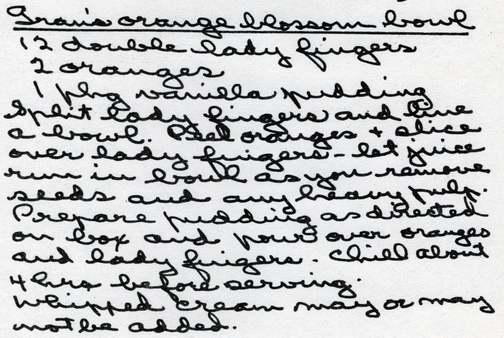 Fran's orange blossom bowl
12 double lady fingers
2 oranges
1 pkg vanilla pudding
Split lady fingers and line
a bowl. Peel oranges + slice
over lady fingers - let juice
run in bowl as you remove
seeds and any heavy pulp.
Prepare pudding as directed
on box and pour over oranges
and lady fingers. Chill about
4 hrs before serving.
Whipped cream may or may
not be added.